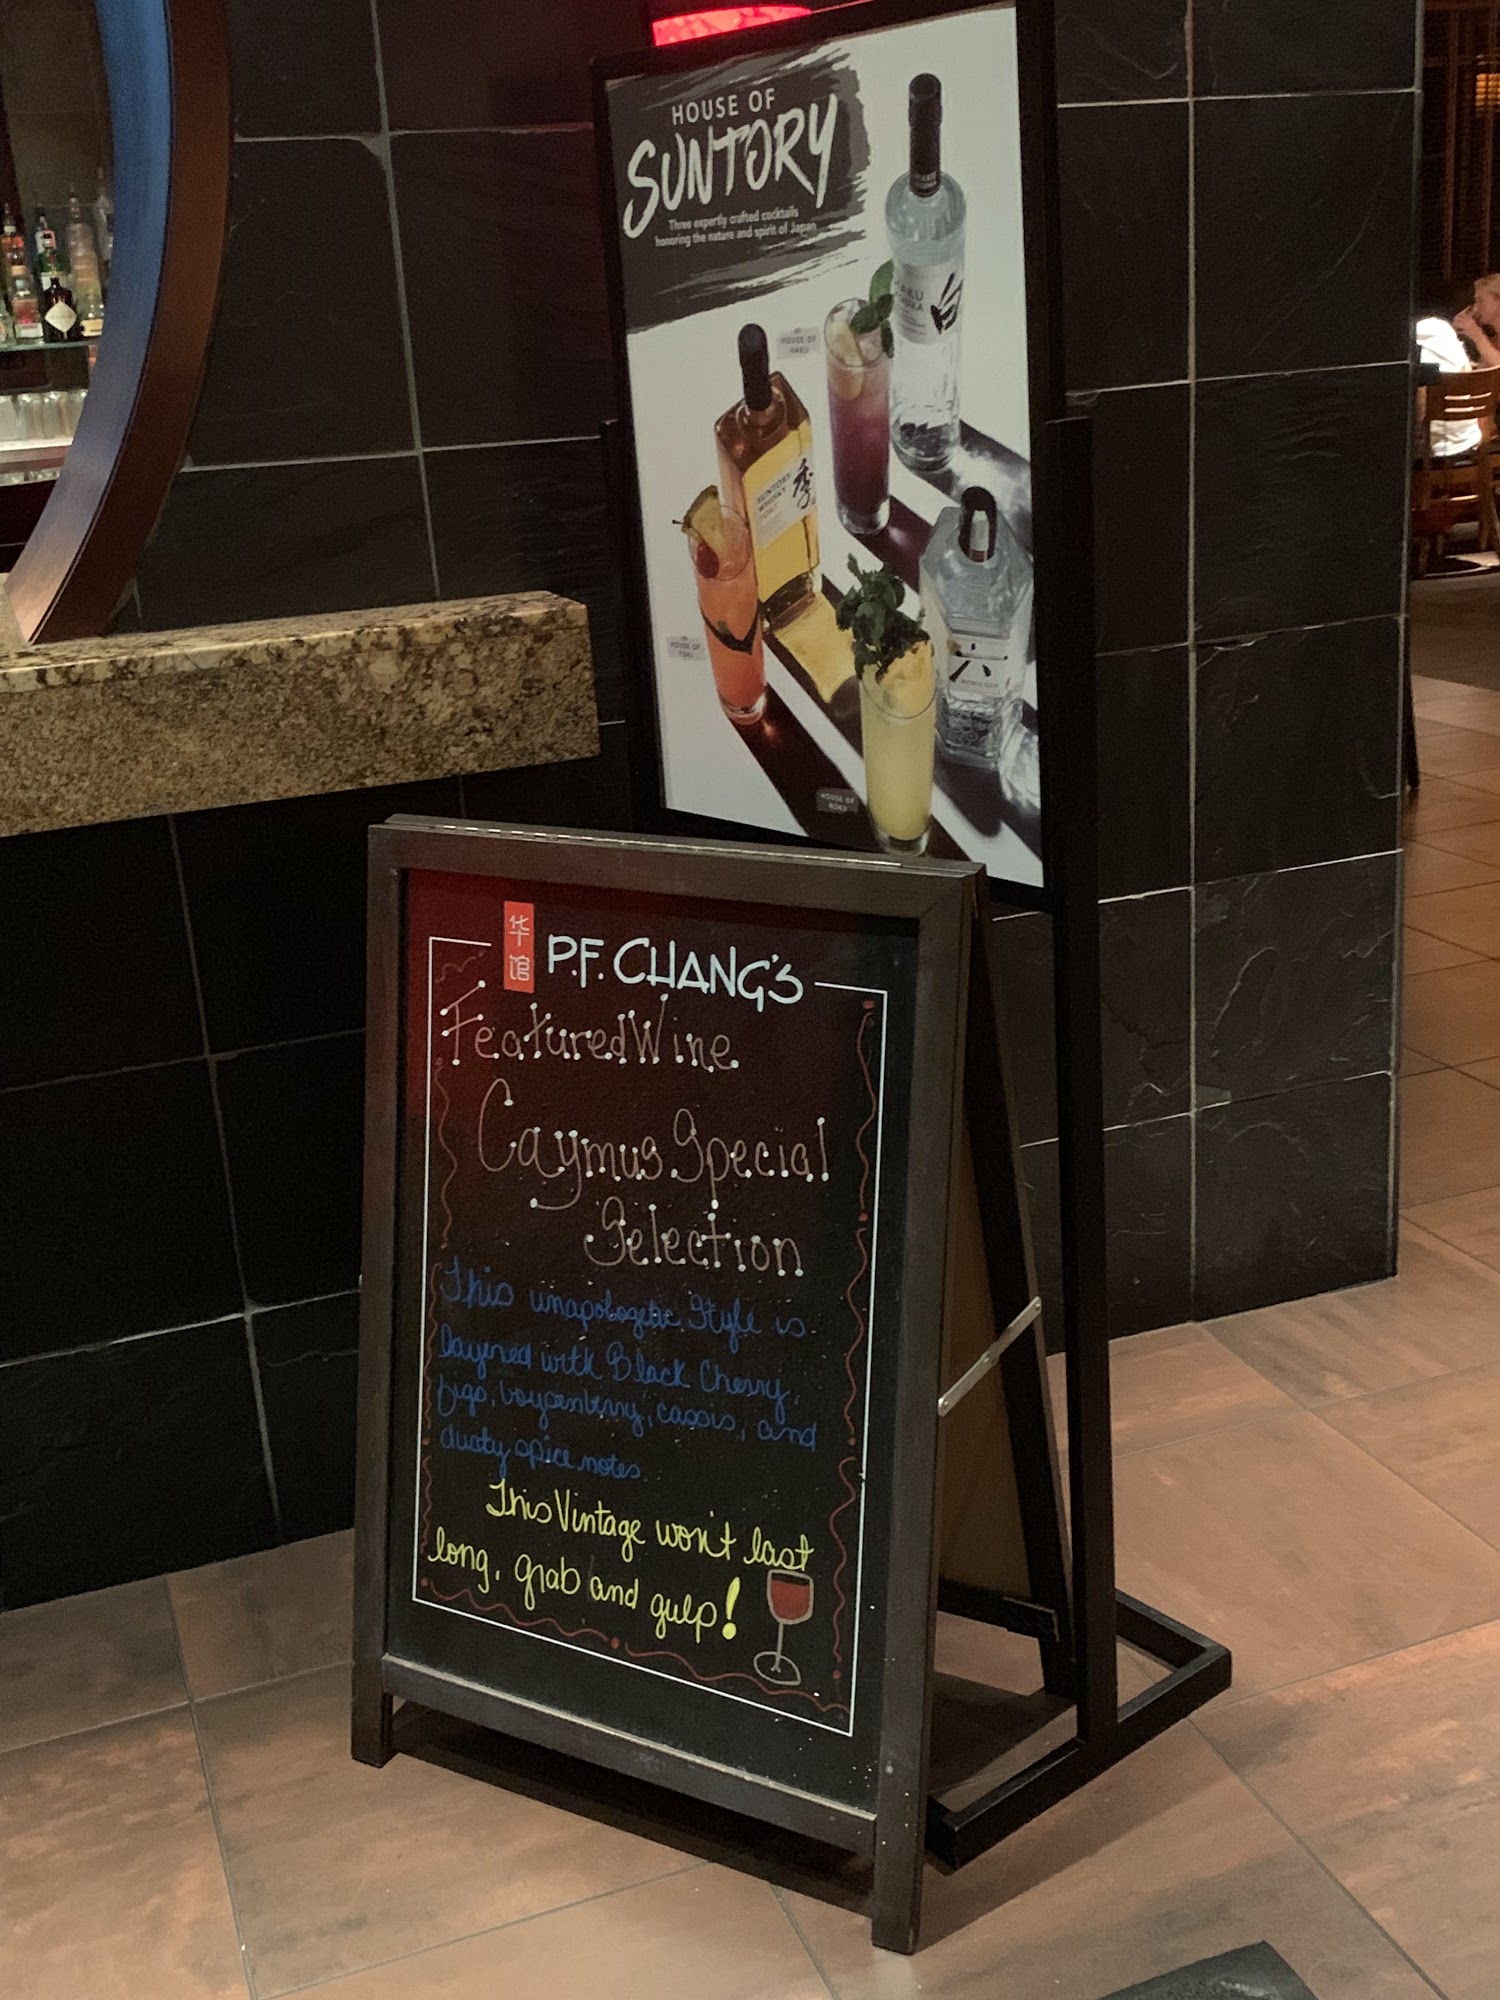 HOUSE OF
SUNTORY
Three expertly crafted cocktails
honoring the nature and spirit of Japan
HAKU
VODKA
HOUSE OF
HAKU
SUNTORY
WHISKY
TOKI
季
HOUSE OF
TOKI
六
ROKU GIN
HOUSE OF
ROKU
华
馆
P.F. CHANG'S
Featured Wine
Caymus Special
Selection
This unapologetic Style is
layered with Black Cherry,
figs, boysenberry, cassis, and
dusty spice notes.
This Vintage won't last
long, grab and gulp!